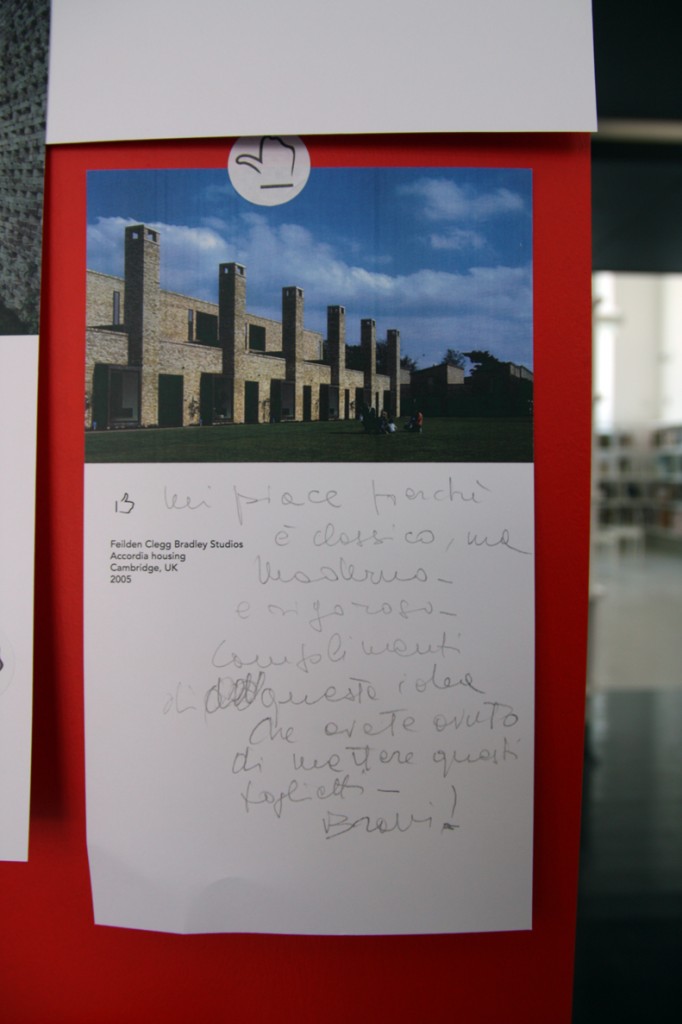 13
Mi piace perchè
è classico, ma
moderno -
e rigoroso -
complimenti
di questa idea
che avete avuto
di mettere questi
foglietti -
Bravi!
Feilden Clegg Bradley Studios
Accordia housing
Cambridge, UK
2005